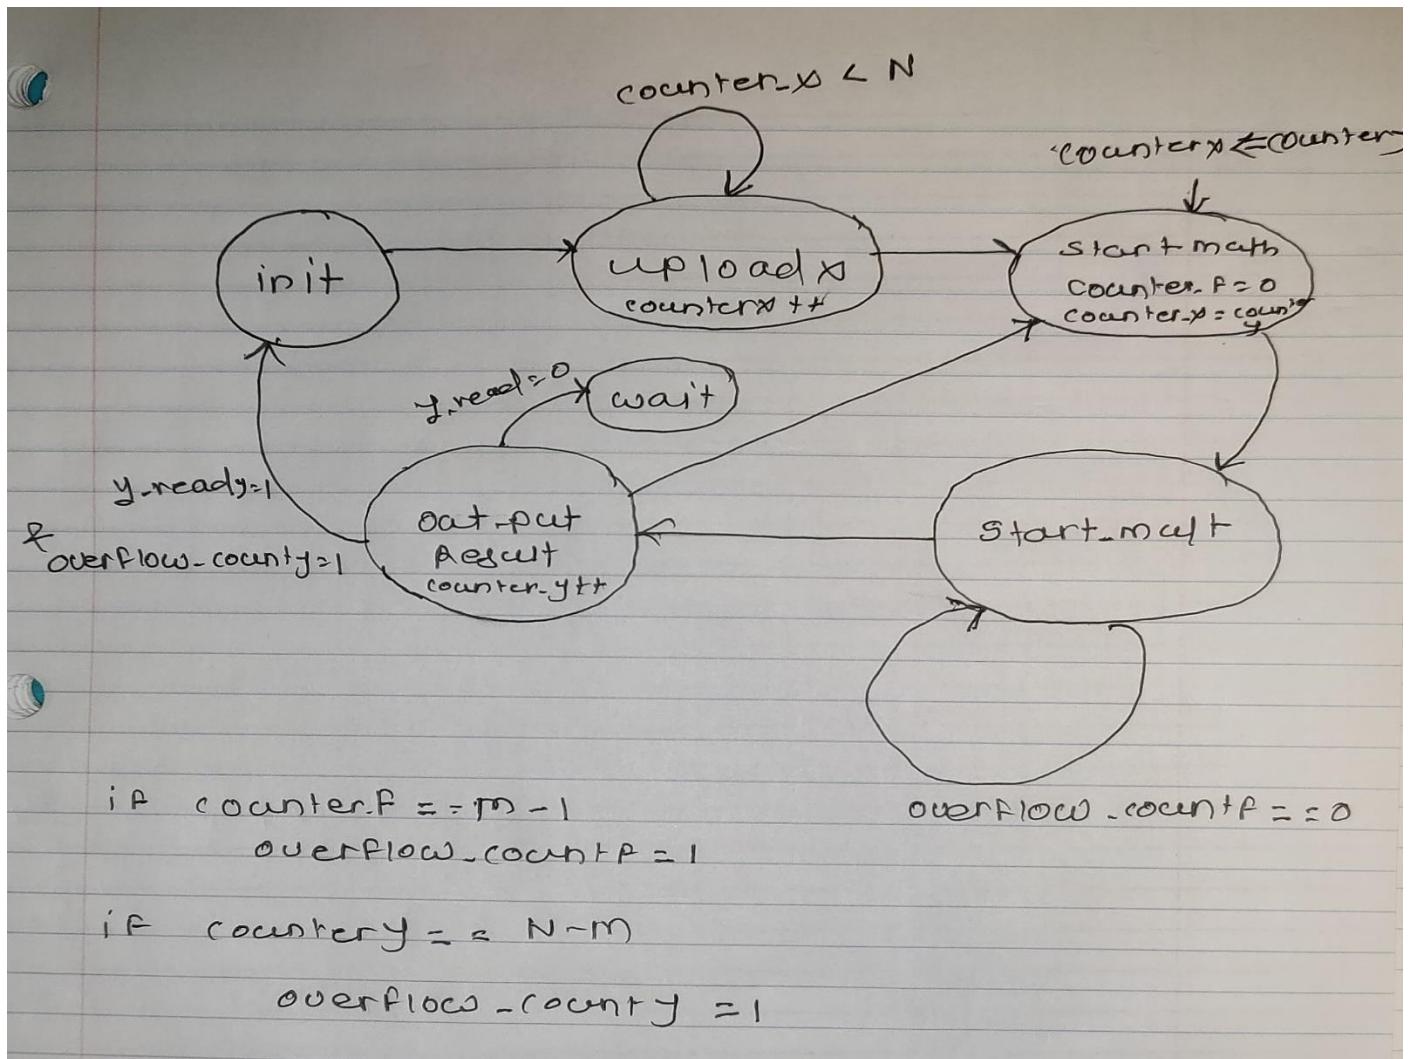 counter_x < N
counterx <= counter
init
upload x
counterx ++
start math
counter_f = 0
counter_x = count
y
y_read = 0
wait
y_ready = 1
&
overflow_county = 1
out_put
Result
counter_y++
start_mult
if counter_f == m - 1
overflow_countf == 0
overflow_countf = 1
if countery == N - m
overflow_county = 1